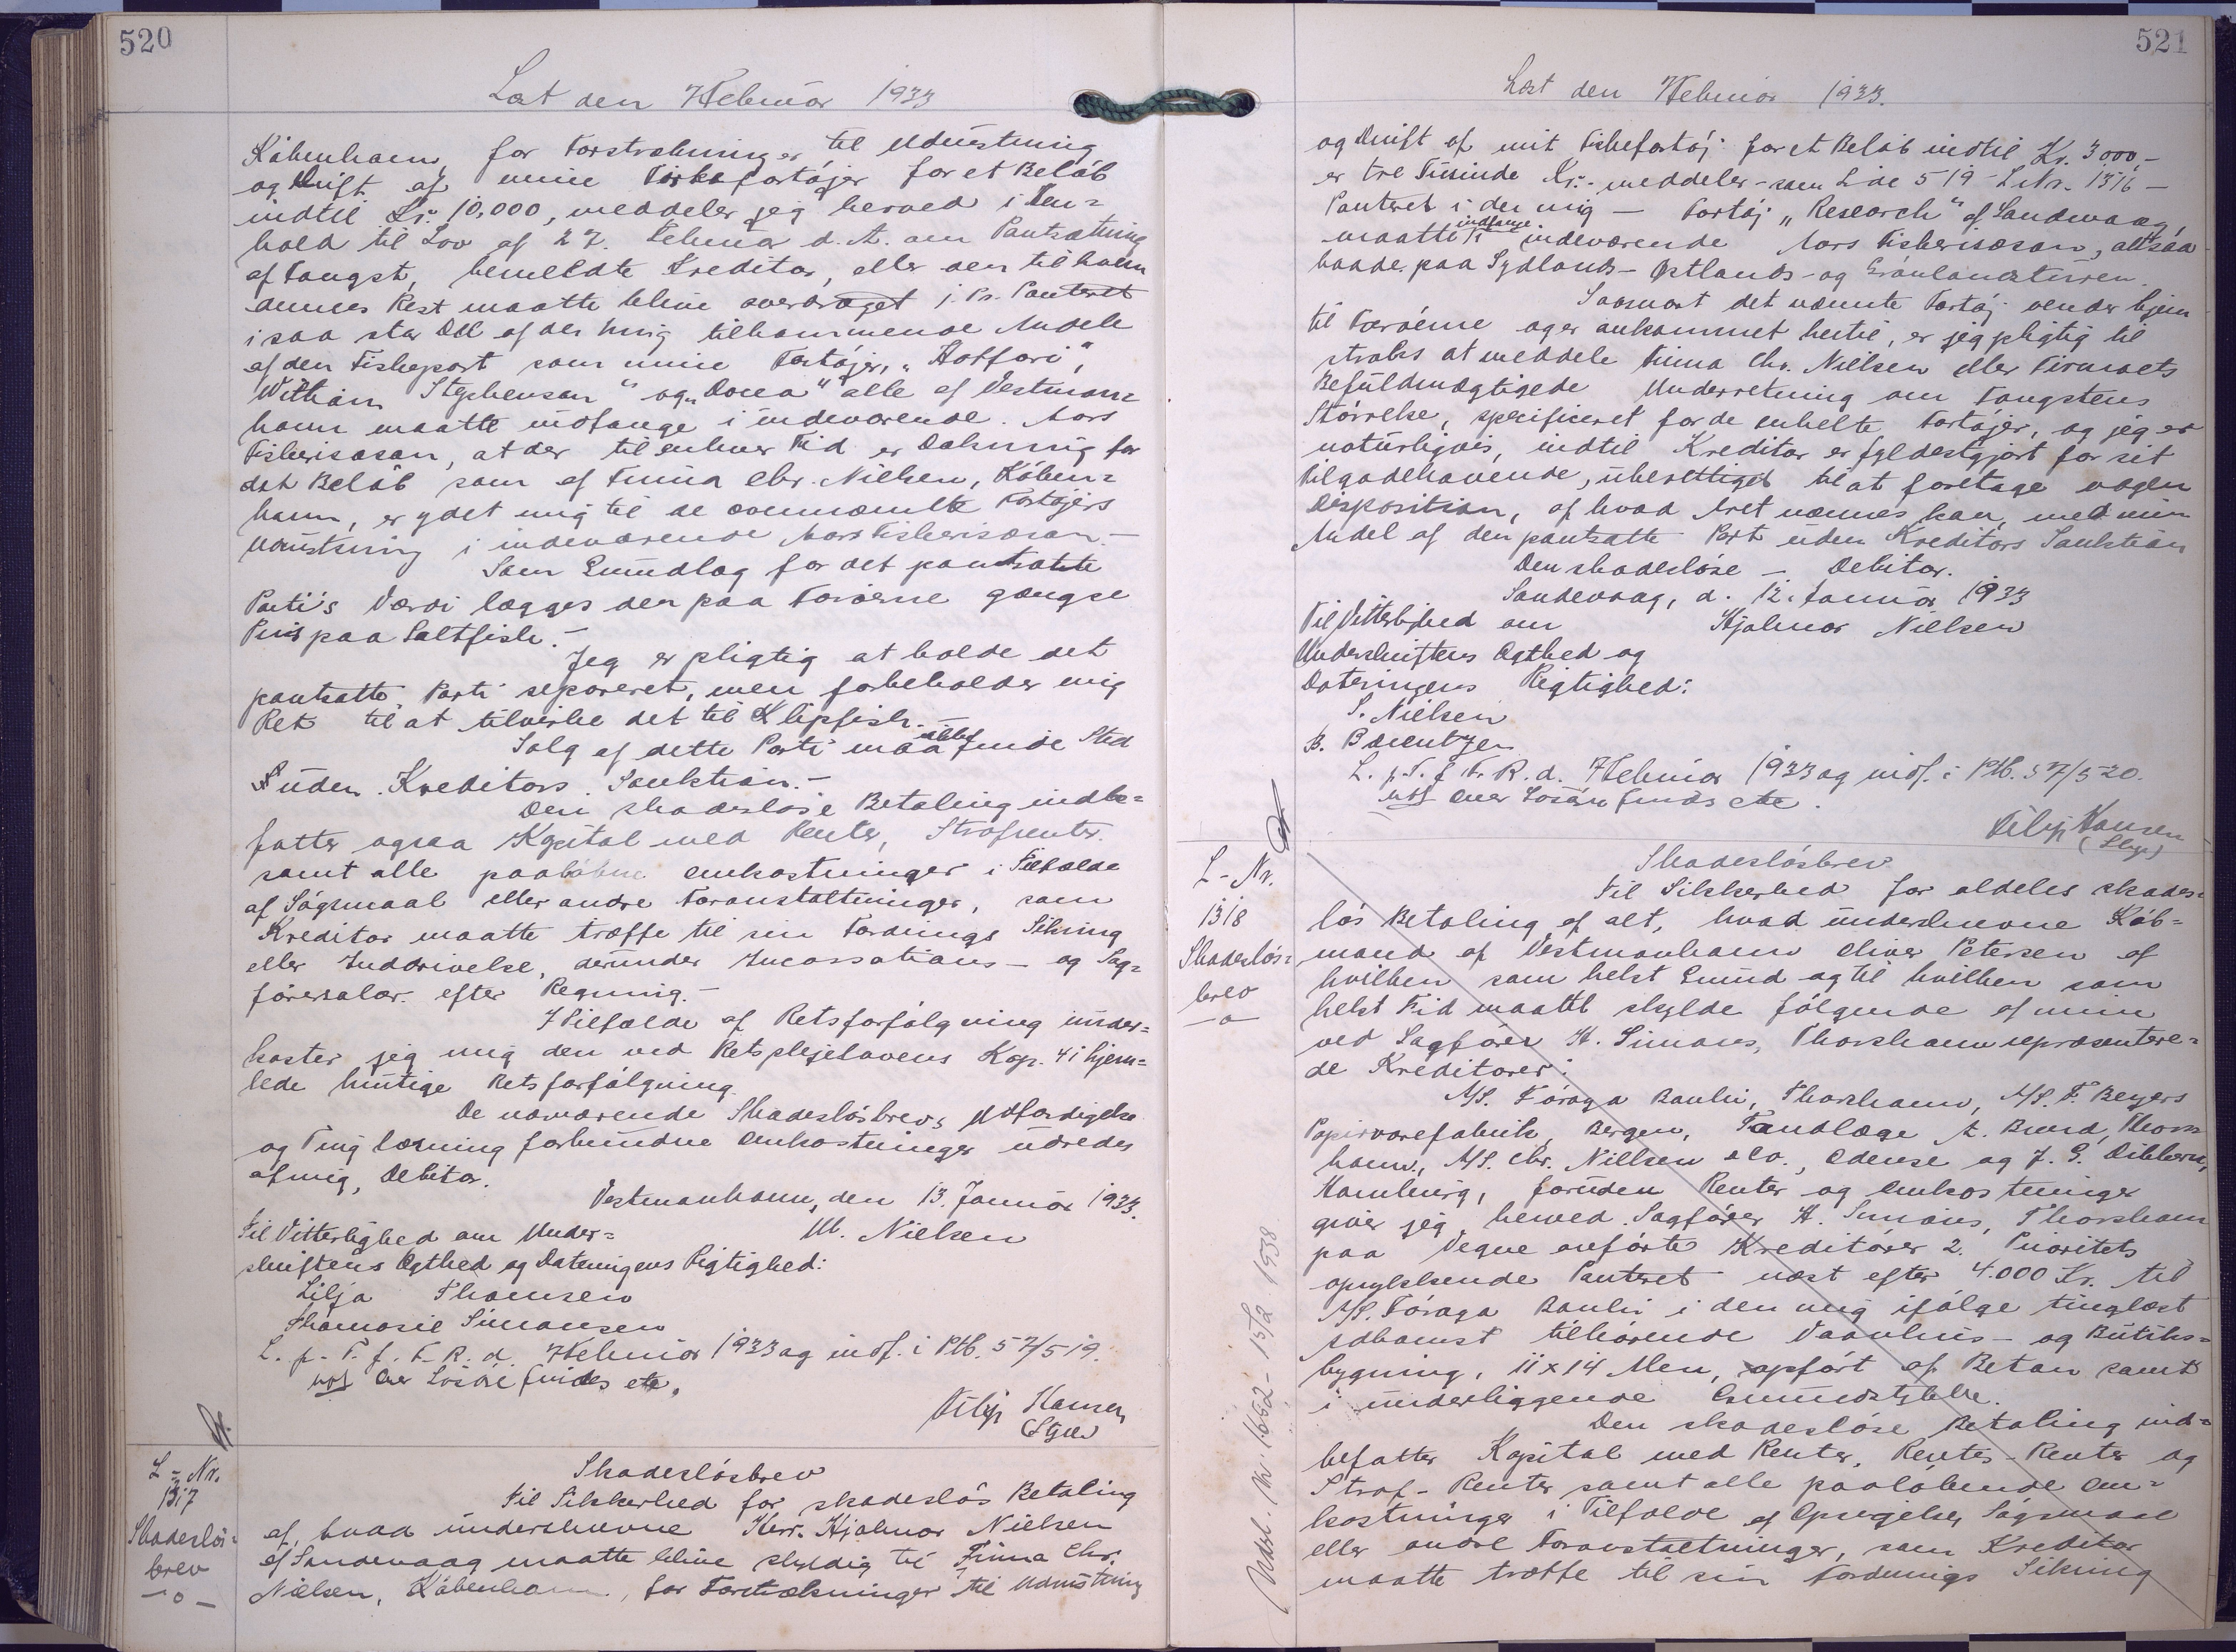 520
Læst den 7 Februar 1933
København, for Forstrækninger til Udrustning
og Drift af mine Fiskefartøjer for et Beløb
indtil Kr. 10,000, meddeler jeg herved i Hen=
hold til Lov af 27. Februar d. A. om Pantsætning
af Fangst, bemeldte Kreditor, eller den til hvem
dennes Ret maatte blive overdraget 1. Pr. Panteret
i saa stor Del af der mig tilkommende Andele
af den Fiskepart som mine Fartøjer, "Hoffari",
William Stephenson" og "Dona" alle af Vestman=
havn maatte indfange i indeværende Aars
Fiskerisæson, at der til enhver Tid er Dækning for
det Beløb som af Firma Chr. Nielsen, Køben=
havn, er ydet mig til de ovennævnte Fartøjers
Udrustning i indeværende Aars Fiskerisæson.-
Som Grundlag for det pantsatte
Parti's Værdi lægges den paa Færøerne gængse
Pris paa Saltfisk.-
Jeg er pligtig at holde det
pantsatte Parti separeret, men forbeholder mig
Ret til at tilvirke det til Klipfisk.-
Salg af dette Parti maa ikke finde Sted
uden Kreditors Sanktion.-
Den skadesløse Betaling indbe=
fatter ogsaa Kapital med Renter, Strafrenter
samt alle paaløbne Omkostninger i Tilfælde
af Søgsmaal eller andre Foranstaltninger, som
Kreditor maatte træffe til sin Fordrings Sikring
eller Inddrivelse, derunder Incassations- og Sag=
førersalær efter Regning.-
I Tilfælde af Retsforfølgning under=
kaster jeg mig den ved Retsplejelovens Kap. 41 hjem=
lede hurtige Retsforfølgning.
De nærværende Skadesløsbrevs Udfærdigelse
og Tinglæsning forbundne Omkostninger udredes
af mig, Debitor.
Vestmanhavn, den 13. Januar 1933.
Til Vitterlighed om Under= M. Nielsen
skriftens Ægthed og Dateringens Rigtighed:
Lilja Thomsen
Thomasie Simonsen
L. p. T. f. F. R. d. 7 Februar 1933 og indf. i Ptb. 57/519.
Løsøre findes etc.
Filip Hansen
L-Nr.
1317
Skadesløs=
brev
-o-
Skadesløsbrev
Til Sikkerhed for skadesløs Betaling
af, hvad underskrevne Herr. Hjalmar Nielsen
af Sandevaag maatte blive skyldig til Firma Chr.
Nielsen, København, for Forstrækninger til Udrustning
521
Læst den 7 Februar 1933.
og Drift af mit Fiskefartøj for et Beløb indtil Kr. 3000,-
er tre Tusinde Kr.- meddeler - som Side 519 - L Nr. 1316 -
Panteret i der mig - Fartøj "Research" af Sandevaag,
maatte indfange i indeværende Aars Fiskerisæson, altsaa
baade paa Sydlands- Østlands- og Grønlandsturen.
Saasnart det nævnte Fartøj vender hjem
til Færøerne og er ankommet hertil, er jeg pligtig til
straks at meddele Firma Chr. Nielsen eller Firmaets
Befuldmægtigede Underretning om Fangstens
Størrelse, specificeret for de enkelte Fartøjer, og jeg er
naturligvis, indtil Kreditor er fyldestgjort for sit
Tilgodehavende, uberettiget til at foretage nogen
Disposition, af hvad Art nævnes kan, med min
Andel af den pantsatte Part uden Kreditors Sanktion
Den skadesløse - Debitor.
Sandevaag, d. 12. Januar 1933
Til Vitterlighed om Hjalmar Nielsen
Underskriftens Ægthed og
Dateringens Rigtighed:
S. Nielsen
B. Barentzen
L. p. T. f. F. R. d. 7 Februar 1933 og indf. i Ptb. 57/520.
Løsøre findes etc.
Filip Hansen
L-Nr.
1318
Skadesløs=
brev
-o-
Udsl. Nr. 1662 - 15/2 1938
Skadesløsbrev
Til Sikkerhed for aldeles skades=
løs Betaling af alt, hvad underskrevne Køb=
mand af Vestmanhavn Oliver Petersen af
hvilken som helst Grund og til hvilken som
helst Tid maatte skylde følgende af mine
ved Sagfører H. Simoni, Thorshavn repræsentere=
de Kreditorer:
A/S. Føroya Banki, Thorshavn, A/S. F. Beyers
Papirvarefabrik, Bergen, Tandlæge A. Brend, Thors
havn, A/S. Chr. Nielsen & Co., Odense og J. G. Dibbern,
Hamburg, foruden Renter og Omkostninger
giver jeg herved Sagfører H. Simoni, Thorshavn
paa Vegne anførte Kreditorer 2. Prioritets
oprykkende Panteret næst efter 4.000 Kr. til
A/S. Føroya Banki i den mig ifølge tinglæst
Adkomst tilhørende Vaanhus- og Butiks=
bygning, 11 x 14 Alen, opført af Beton samt
i underliggende Grundstykke.
Den skadesløse Betaling ind=
befatter Kapital med Renter, Rentes-Renter og
Straf-Renter samt alle paaløbende Om=
kostninger i Tilfælde af Opsigelse, Søgsmaal
eller andre Foranstaltninger, som Kreditor
maatte træffe til sin Fordrings Sikring